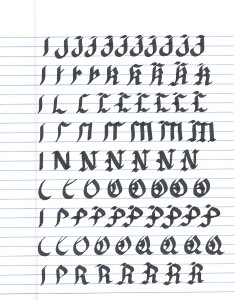 I J J J J J J J J J
K K K K
I L L L L L L L
I r n n m m M M
I N N N N N N
C C O O O O O O
I P P P P P P P P
C C O O O Q Q Q Q
I P R R R R R R